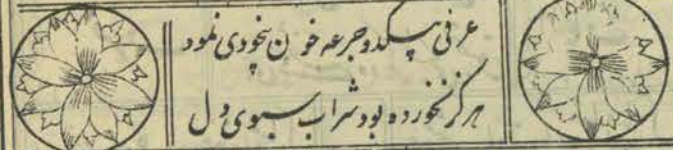 عرفی بیکدو جرعه خون بیخودی نمود
هرگز نخورده بود شراب سبوی دل